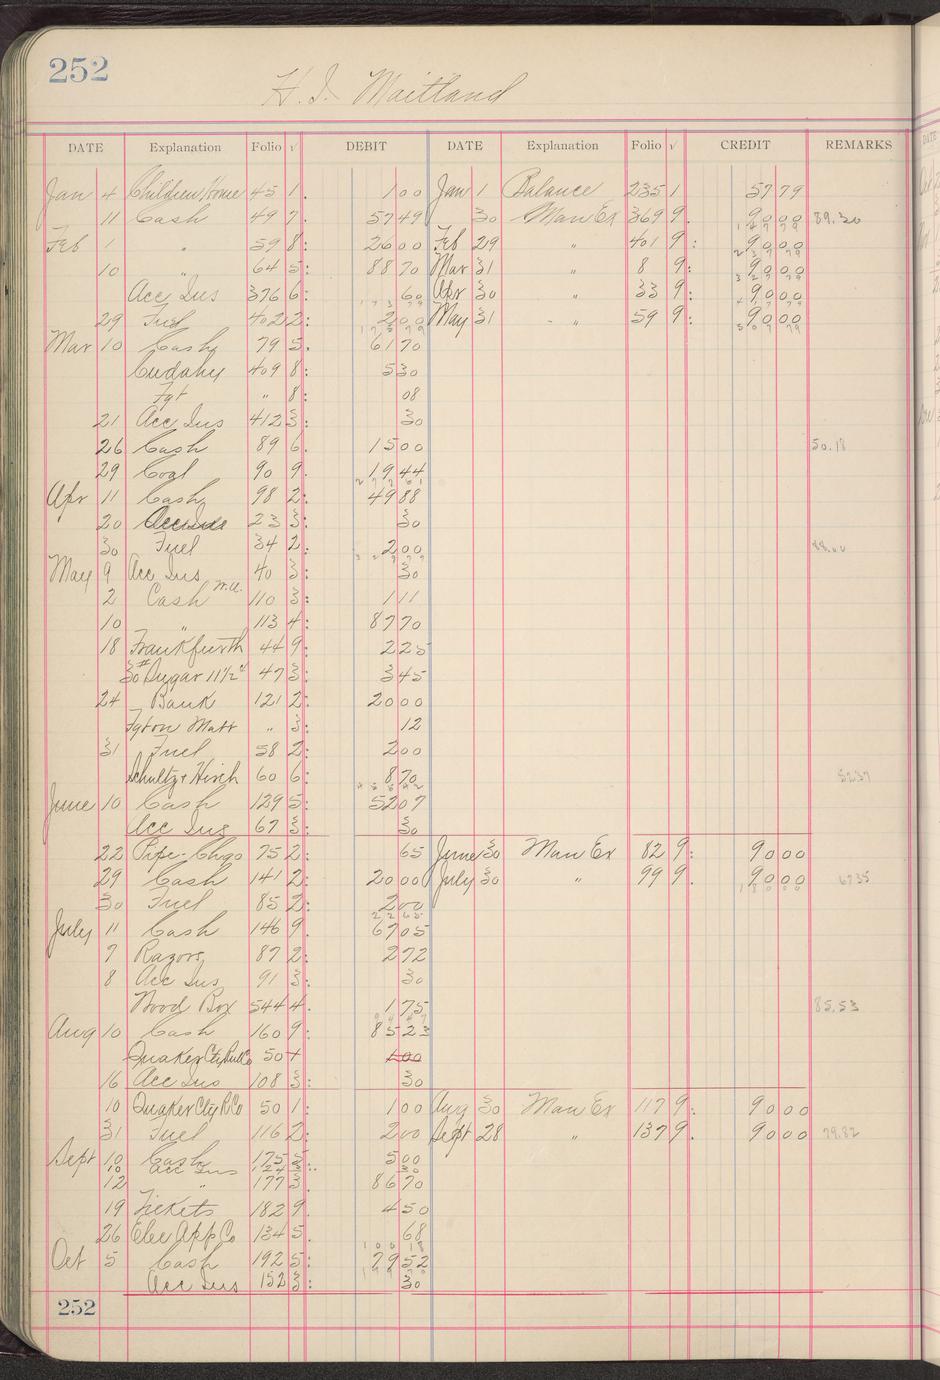 252
H. I. Maitland
DATE Explanation Folio √ DEBIT DATE Explanation Folio √ CREDIT REMARKS
Jan 4 Children Home 45 1. 1 00 Jan 1 Balance 235 1 57 79
11 Cash 49 7. 57 49 30 Man Ex 369 9. 90 00 89.30
Feb 1 " 59 8: 26 00 Feb 29 " 401 9: 90 00
10 " 64 5: 88 70 Mar 31 " 8 9: 90 00
Acc Ins 376 6: 60 Apr 30 " 33 9: 90 00
29 Fuel 402 2: 2 00 May 31 " 59 9: 90 00
Mar 10 Cash 79 5. 61 70
Cudahy 409 8: 5 30
Fgt " 8: 08
21 Acc Ins 412 3: 30
26 Cash 89 6. 15 00 50.18
29 Coal 90 9. 19 44
Apr 11 Cash 98 2: 49 88
20 Acc Ins 23 3: 30
30 Fuel 34 2. 2 00 88.00
May 9 Acc Ins 40 3: 30
2 Cash 110 3: 1 11
10 " 113 4: 87 70
18 Frankfurth 44 9: 2 25
30# Sugar 11 1/2 47 3: 3 45
24 Bank 121 2: 20 00
Fgt on Matt " 3: 12
31 Fuel 58 2: 2 00
Schultz & Hirsh 60 6: 8 70 5237
June 10 Cash 129 5: 52 07
Acc Ins 67 3: 30
22 Pipe-Chgo 75 2: 65 June 30 Man Ex 82 9: 90 00
29 Cash 141 2: 20 00 July 30 " 99 9. 90 00 6735
30 Fuel 85 2: 2 00
July 11 Cash 146 9. 67 05
7 Razors 87 2: 2 72
8 Acc Ins 91 3: 30
Wood Box 544 4. 1 75 85.53
Aug 10 Cash 160 9: 85 23
Quaker Cty Rub Co 50 + 1 00
16 Acc Ins 108 3: 30
10 Quaker Cty R Co 50 1: 1 00 Aug 30 Man Ex 117 9: 90 00
31 Fuel 116 2: 2 00 Sept 28 " 137 9. 90 00 79.82
Sept 10 Cash 175 5 5 00
10 Acc Ins 124 3: 30
12 " 177 3. 86 70
19 Tickets 182 9. 4 50
26 Elec App Co 134 5. 68
Oct 5 Cash 192 5: 79 52
Acc Ins 152 3: 30
252